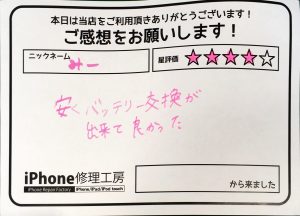 本日は当店をご利用頂きありがとうございます!
ご感想をお願いします!
ニックネーム
みー
星評価 ★★★★☆
安くバッテリー交換が
出来て良かった
iPhone修理工房
iPhone Repair Factory iPhone/iPad/iPod touch
から来ました